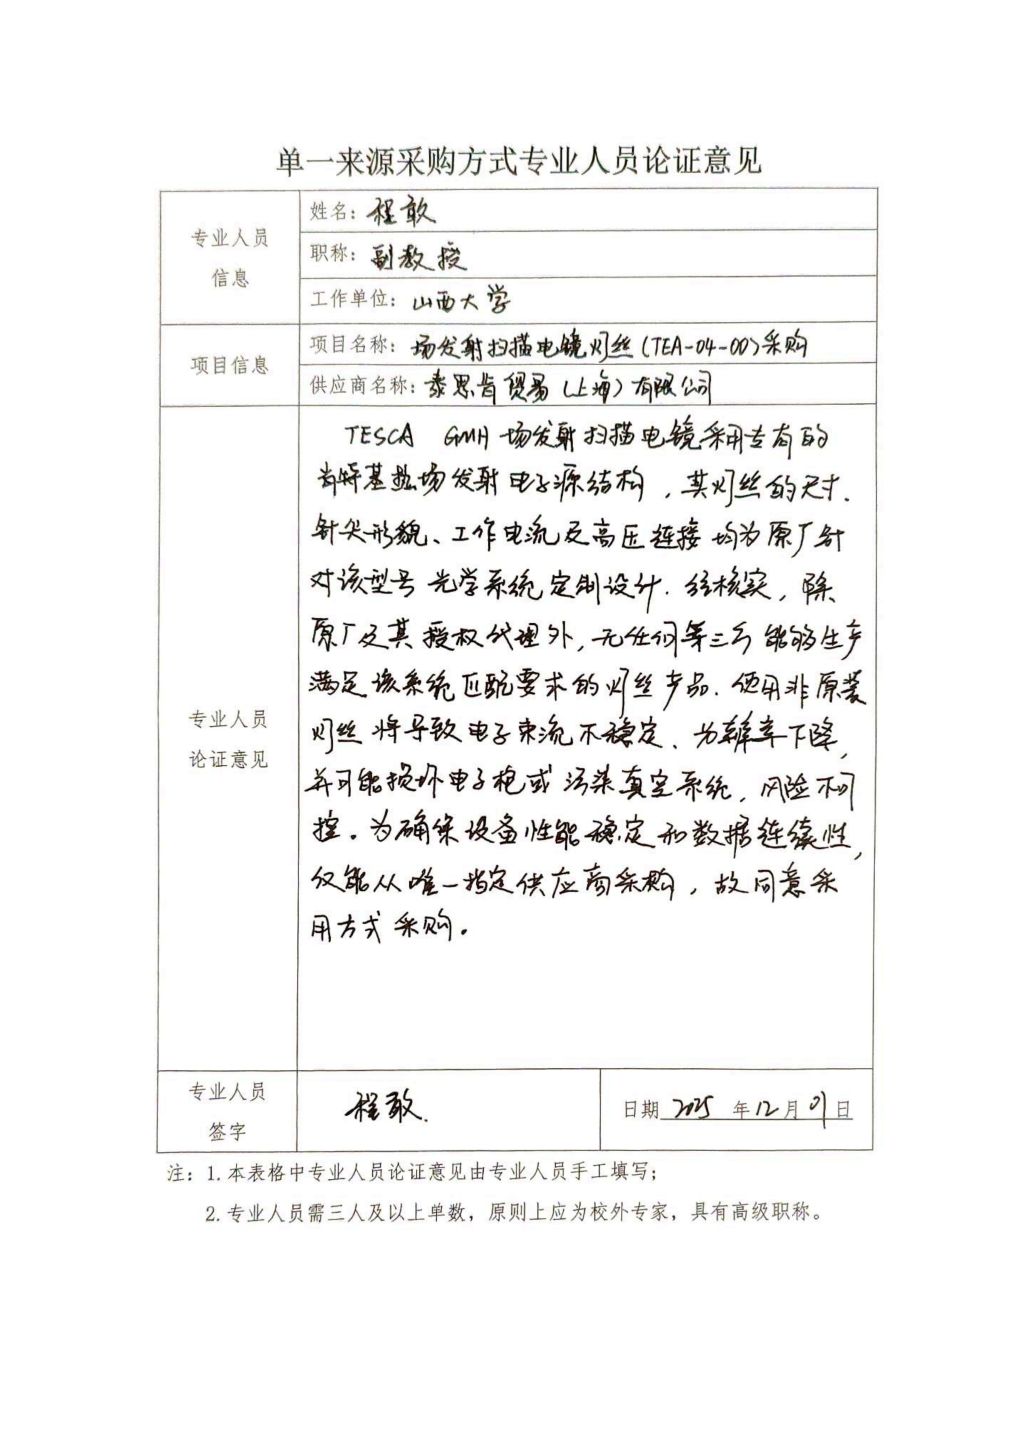 单一来源采购方式专业人员论证意见
专业人员
信息
姓名：程敢
职称：副教授
工作单位：山西大学
项目信息
项目名称：场发射扫描电镜灯丝(TEA-04-00)采购
供应商名称：泰思肯贸易（上海）有限公司
专业人员
论证意见
TESCA GMH 场发射扫描电镜采用专有的
肖特基热场发射电子源结构，其灯丝的尺寸、
针尖形貌、工作电流及高压连接均为原厂针
对该型号光学系统定制设计. 经核实，除
原厂及其授权代理外，无任何第三方能够生产
满足该系统匹配要求的灯丝产品. 使用非原装
灯丝将导致电子束流不稳定、分辨率下降，
并可能损坏电子枪或污染真空系统，风险不可
控。为确保设备性能稳定和数据连续性，
仅能从唯一指定供应商采购，故同意采
用方式采购。
专业人员
签字
程敢.
日期 2025 年 12 月 01 日
注：1.本表格中专业人员论证意见由专业人员手工填写；
2.专业人员需三人及以上单数，原则上应为校外专家，具有高级职称。